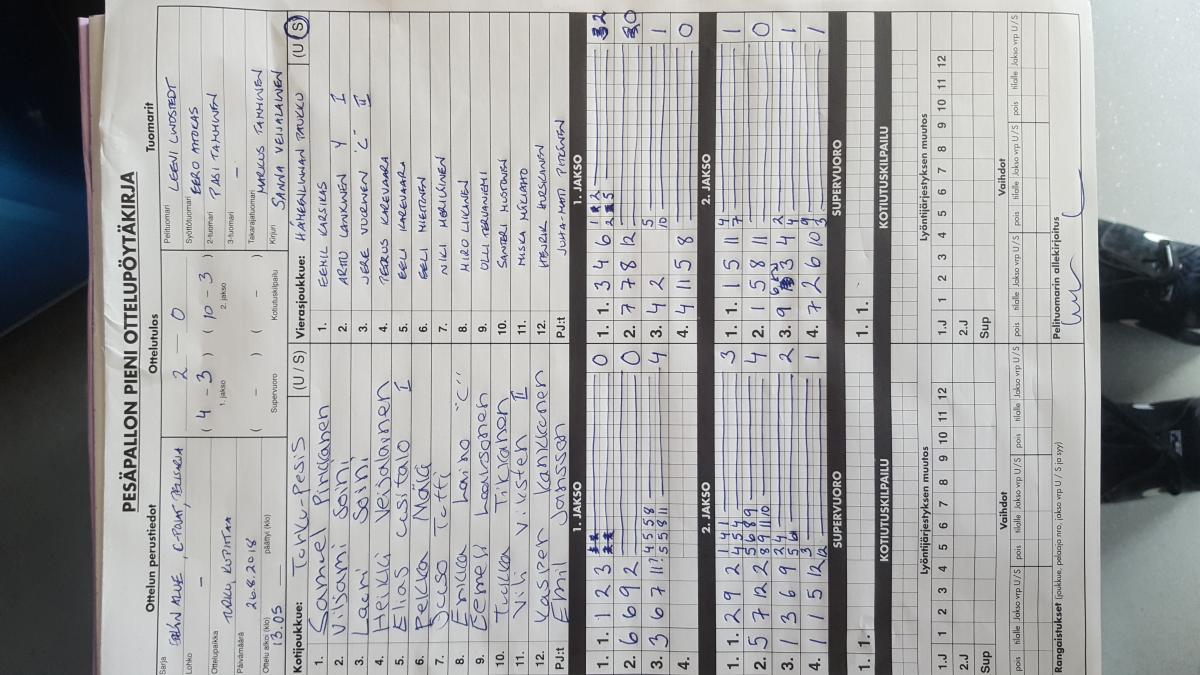 PESÄPALLON PIENI OTTELUPÖYTÄKIRJA
Ottelun perustiedot
Sarja
C-POJAT,
Lohko
–
Ottelupaikka
TURKU, KUPITTAA
Päivämäärä
26.8.2018
Ottelu alkoi (klo) päättyi (klo)
13.05
Ottelutulos
2 – 0
( 4 – 3 ) ( 10 – 3 )
1. jakso 2. jakso
( – ) ( – )
Supervuoro Kotiutuskilpailu
Tuomarit
Pelituomari LEENI LINDSTEDT
Syöttötuomari EERO AITOKAS
2-tuomari PASI TAMMINEN
3-tuomari –
Takarajatuomari MARKUS TAMMINEN
Kirjuri SANNA VEIJALAINEN
Kotijoukkue: Turku-Pesis (U / S)
1. Samuel Pirkkanen
2. Viljami Soini
3. Laeni Soini
4. Heikki Veijalainen
5. Elias Uusitalo I
6. Pekka Mäki
7. Juuso Tatti
8. Erikka Laino "C"
9. Eemeli LaurSonen
10. Tuukka Tikkanen
11. Vili Virsten II
12. Kasper Kankkonen
PJ:t Emil Jansson
Vierasjoukkue: HÄMEENLINNAN TAUKKU (U / S)
1. EEMIL KARSIKAS
2. ARTTU LANKINEN Y I
3. JERE VUORINEN "C" II
4. PETRUS KAREVAARA
5. EELI KAREVAARA
6. EELI MIETTINEN
7. NIKI MERILÄINEN
8. MIRO LIIKANEN
9. OLLI TERVANIEMI
10. SANTERI MUSTONEN
11. MISKA MÄKIAHO
12. HENRIK HURSKAINEN
PJ:t JUHA-MATTI PITKÄNEN
1. JAKSO 1. JAKSO
1. 1. 1 2 3 0
2. 6 6 9 2 0
3. 3 6 7 11 4 5 5 8 4
5 5 8 11
4.
1. 1. 3 4 6 2
2. 7 7 8 12 0
3. 4 2 5 1
10
4. 4 11 5 8 0
2. JAKSO 2. JAKSO
1. 1. 2 9 2 1 4 1 3
4 5 4
2. 5 7 12 2 5 6 8 9 4
8 9 11 10
3. 1 3 6 9 2 4 2
5 6
4. 1 1 5 12 3 1
12
1. 1. 1 5 11 4 1
7
2. 1 5 8 11 0
3. 9 3 4 2 1
4
4. 7 2 6 10 9 1
3
SUPERVUORO SUPERVUORO
1. 1.
1. 1.
KOTIUTUSKILPAILU KOTIUTUSKILPAILU
Lyöntijärjestyksen muutos Lyöntijärjestyksen muutos
1.J 1 2 3 4 5 6 7 8 9 10 11 12
2.J
Sup
1.J 1 2 3 4 5 6 7 8 9 10 11 12
2.J
Sup
Vaihdot Vaihdot
pois tilalle Jakso vrp U / S pois tilalle Jakso vrp U / S
pois tilalle Jakso vrp U / S pois tilalle Jakso vrp U / S
Rangaistukset (joukkue, pelaaja nro, jakso vrp U / S ja syy)
Pelituomarin allekirjoitus